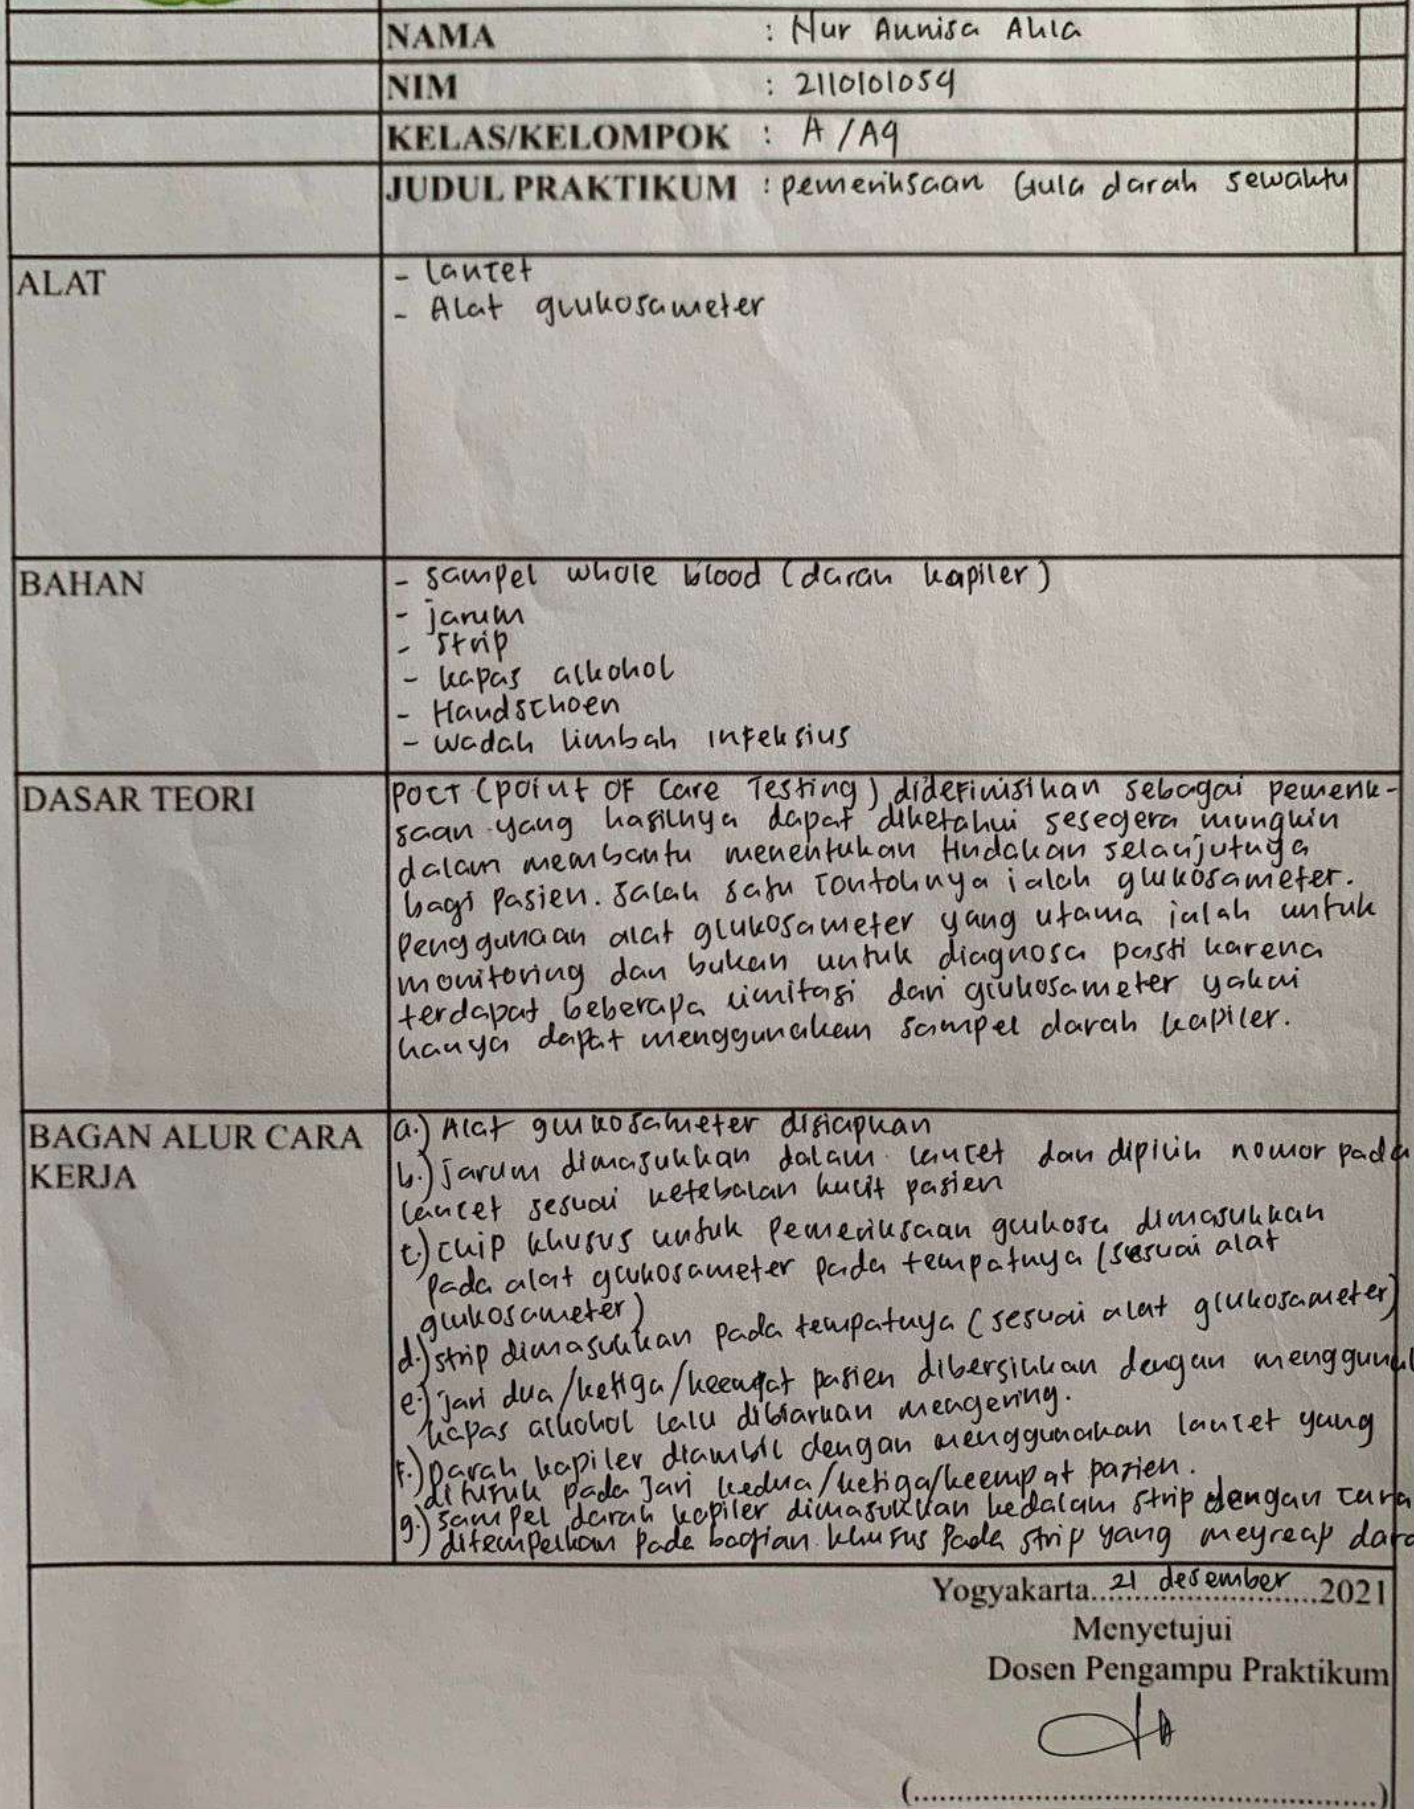 NAMA : Nur Annisa Aula
NIM : 2110101054
KELAS/KELOMPOK : A / A9
JUDUL PRAKTIKUM : pemeriksaan Gula darah sewaktu
ALAT
- lancet
- Alat glukosameter
BAHAN
- sampel whole blood (darah kapiler)
- jarum
- strip
- kapas alkohol
- Handschoen
- wadah limbah infeksius
DASAR TEORI
POCT (point OF Care Testing) didefinisikan sebagai pemerik-
saan yang hasilnya dapat diketahui sesegera mungkin
dalam membantu menentukan tindakan selanjutnya
bagi pasien. salah satu contohnya ialah glukosameter.
penggunaan alat glukosameter yang utama ialah untuk
monitoring dan bukan untuk diagnosa pasti karena
terdapat beberapa limitasi dari glukosameter yakni
hanya dapat menggunakan sampel darah kapiler.
BAGAN ALUR CARA
KERJA
a.) Alat glukosameter disiapkan
b.) jarum dimasukkan dalam lancet dan dipilih nomor pada
lancet sesuai ketebalan kulit pasien
c.) chip khusus untuk pemeriksaan glukosa dimasukkan
pada alat glukosameter pada tempatnya (sesuai alat
glukosameter)
d.) strip dimasukkan pada tempatnya (sesuai alat glukosameter)
e.) jari dua/ketiga/keempat pasien dibersihkan dengan menggunak
kapas alkohol lalu dibiarkan mengering.
f.) Darah kapiler diambil dengan menggunakan lancet yang
ditusuk pada jari kedua/ketiga/keempat pasien.
g.) sampel darah kapiler dimasukkan kedalam strip dengan cara
ditempelkan pada bagian khusus pada strip yang meyreap dara
Yogyakarta..21 desember..2021
Menyetujui
Dosen Pengampu Praktikum
(..................................................)